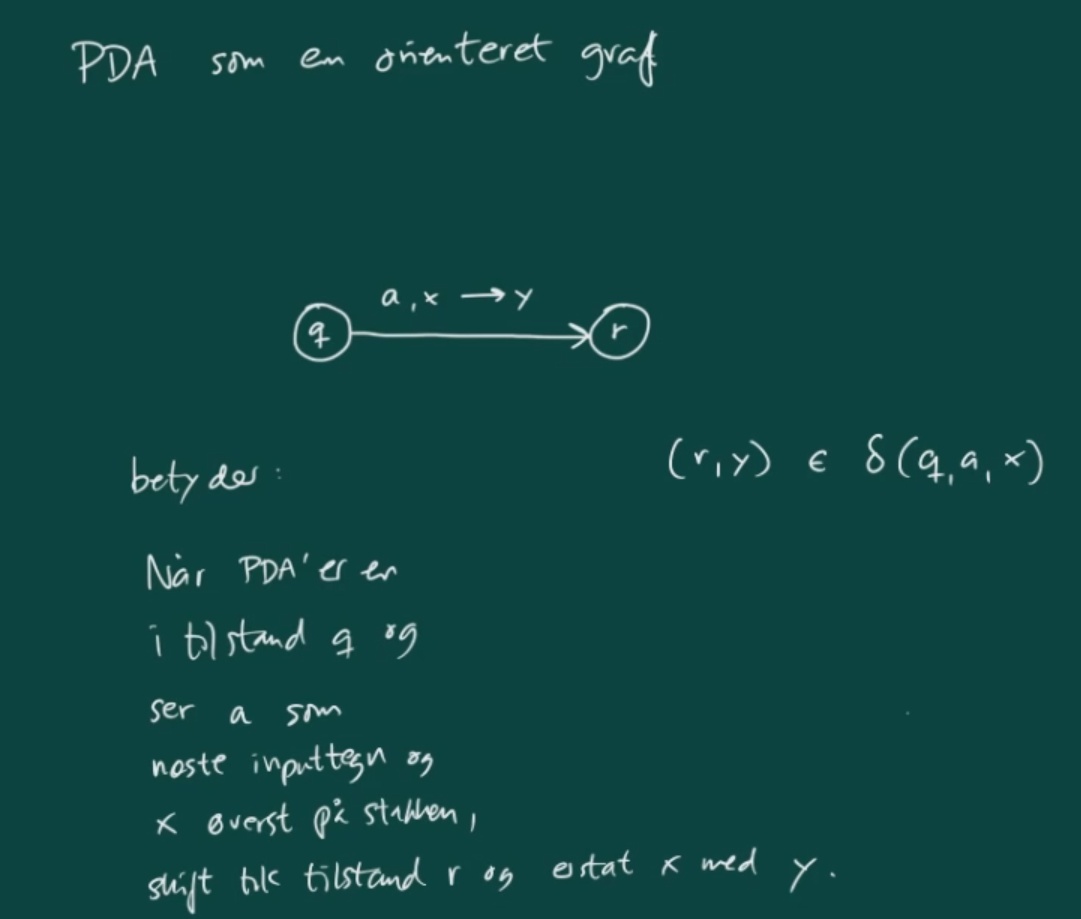 PDA som en orienteret graf
a, x → y
q r
(r, y) ∈ δ(q, a, x)
betyder:
Når PDA'er er
i tilstand q og
ser a som
næste inputtegn og
x øverst på stakken,
skift til tilstand r og erstat x med y.